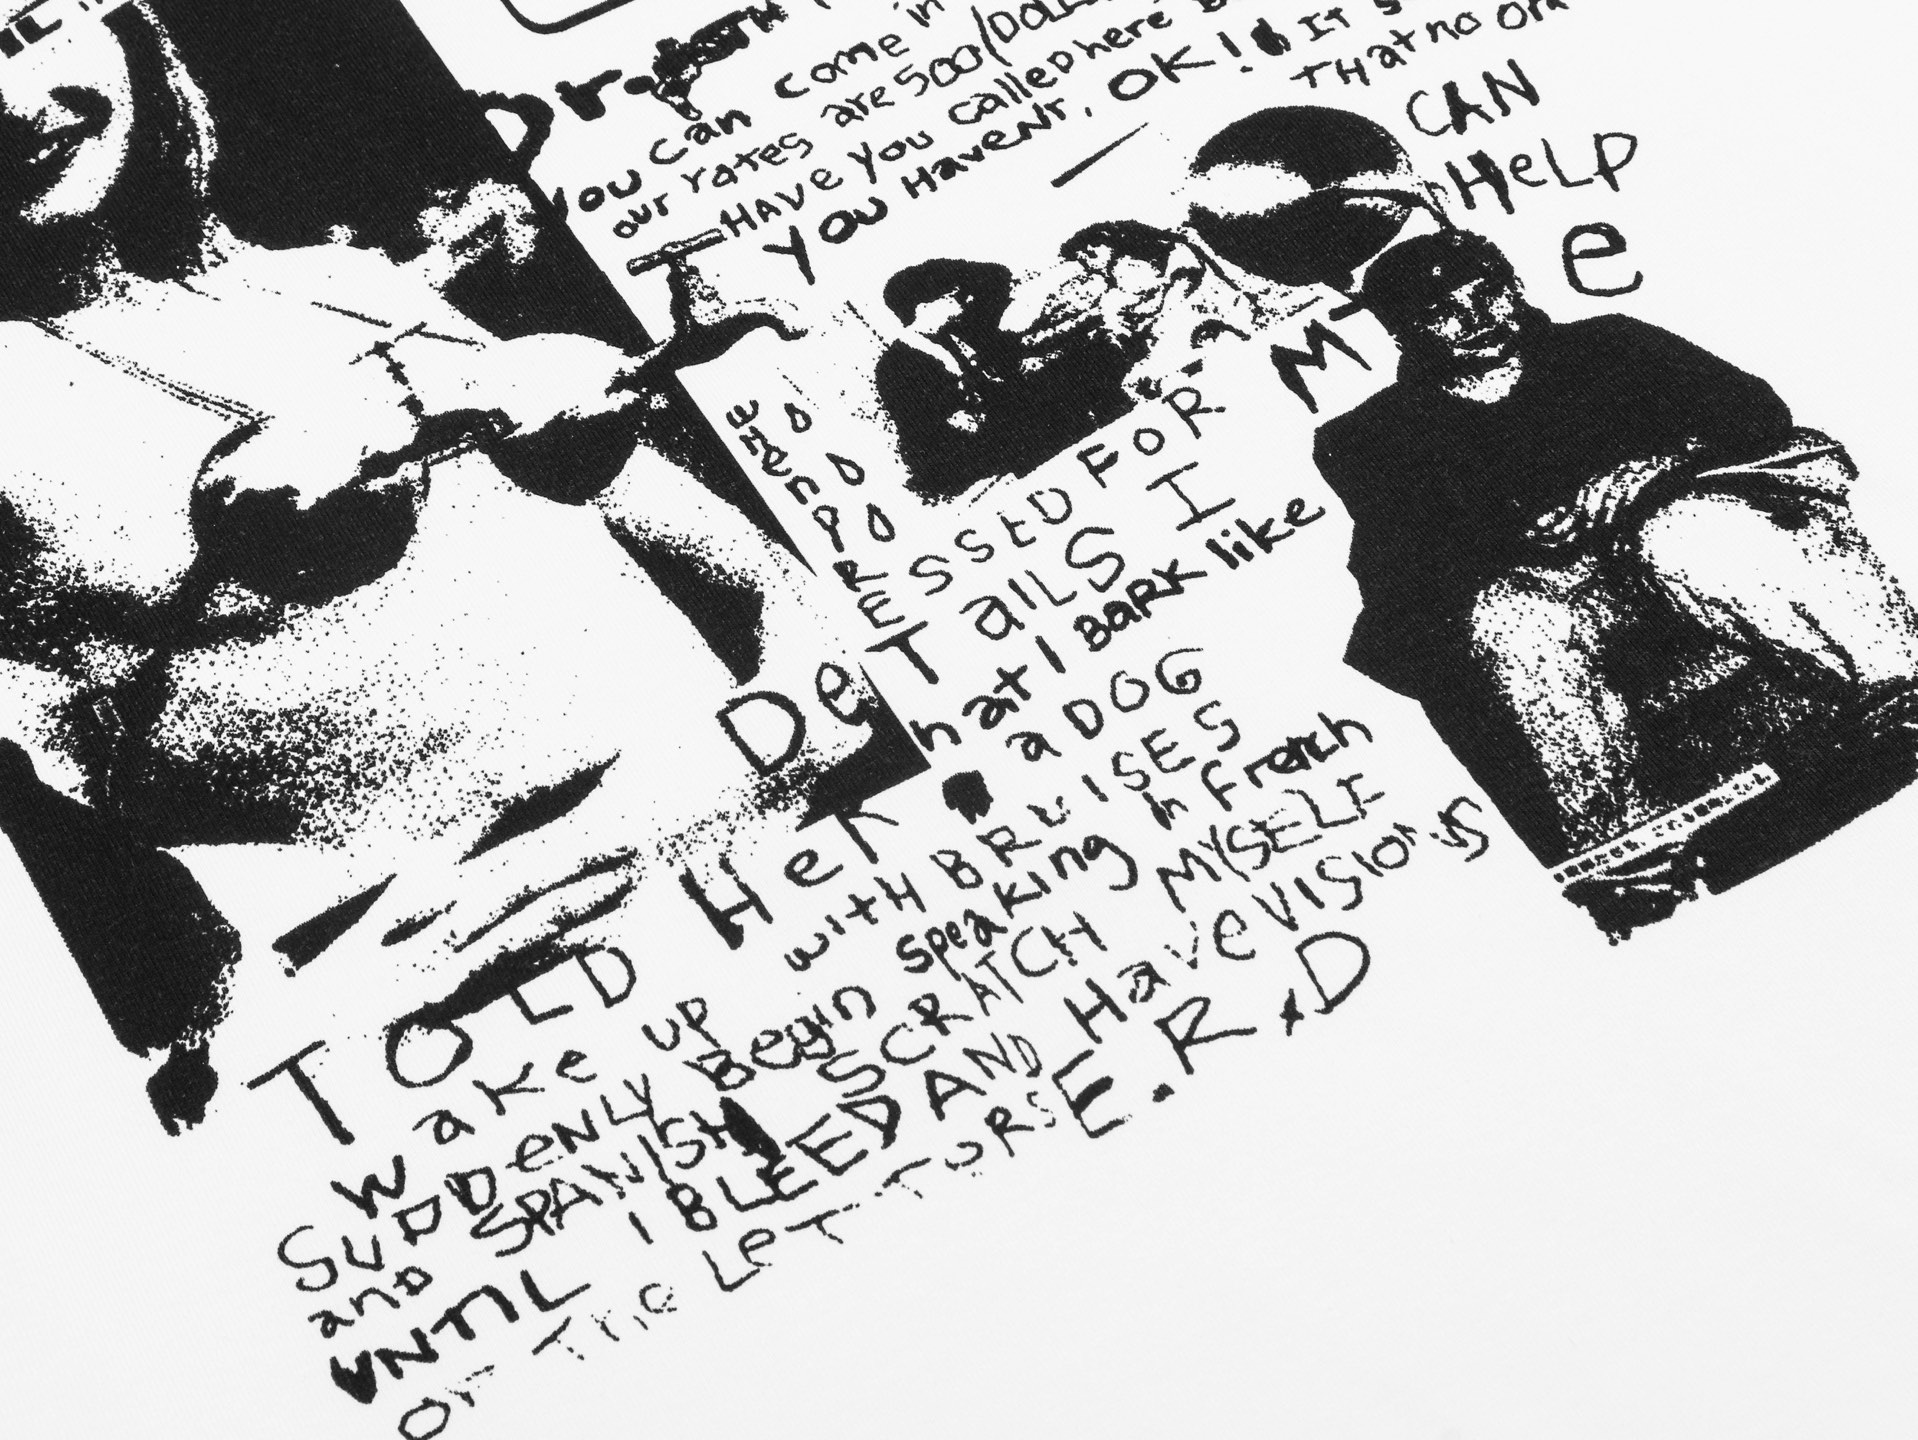 You can come in
our rates are 500/DOLL
HAVE you calleD here B
you Havent, OK! It s
THat no On
CAN
HeLP
M e
PRESSED FOR
DeTaiLS I
TOLD HeR hat I BARK like
a DOG
WaKe UP with BRUISES
SUDDeNLY Begin speaking in French
and SPANISH SCRATCH MYSELF
UNTIL I BLEED AND Have VISIONS
OF THe LeTTURS E.R.D